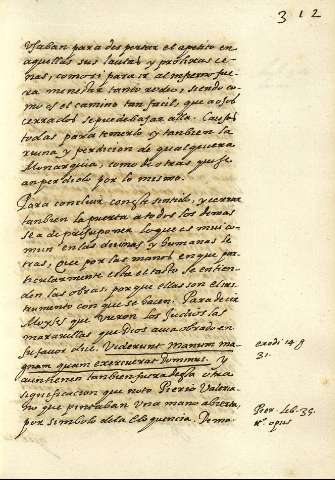 312
Vsaban para despertar el apetito en
aquellas sus lautas y prolixas ce-
nas, como si para ir al infierno fue-
ra menester tanto rodeo, siendo co-
mo es el camino tan facil, que a ojos
cerrados se puede bajar alla. Causas
todas para tenerlo y tanbien la
ruina y perdicion de qualquiera
Monarquia, como de otras que se
an perdido por lo mismo.
Para concluir con este sentido, y cerrar
tanbien la puerta a todos los demas
se a de presuponer lo que es mui co-
mun en las divinas y humanas le-
tras, Que por las manos en que par-
ticularmente esta el tacto se entien-
den las obras, porque ellas son el ins-
trumento con que se hacen. Para decir
Moyses que vieron los Judios las
maravillas que Dios avia obrado en
su favor dice. Viderunt manum ma-
gnam quam exercuerat Dominus. y
aunque tienen tanbien fuera desta otra
significacion que noto Pierio Valeria-
no que pintaban una mano abierta
por simbolo de la Eloquencia. Demo-
exodi 14 §
31.
Pier. Lib. 35.